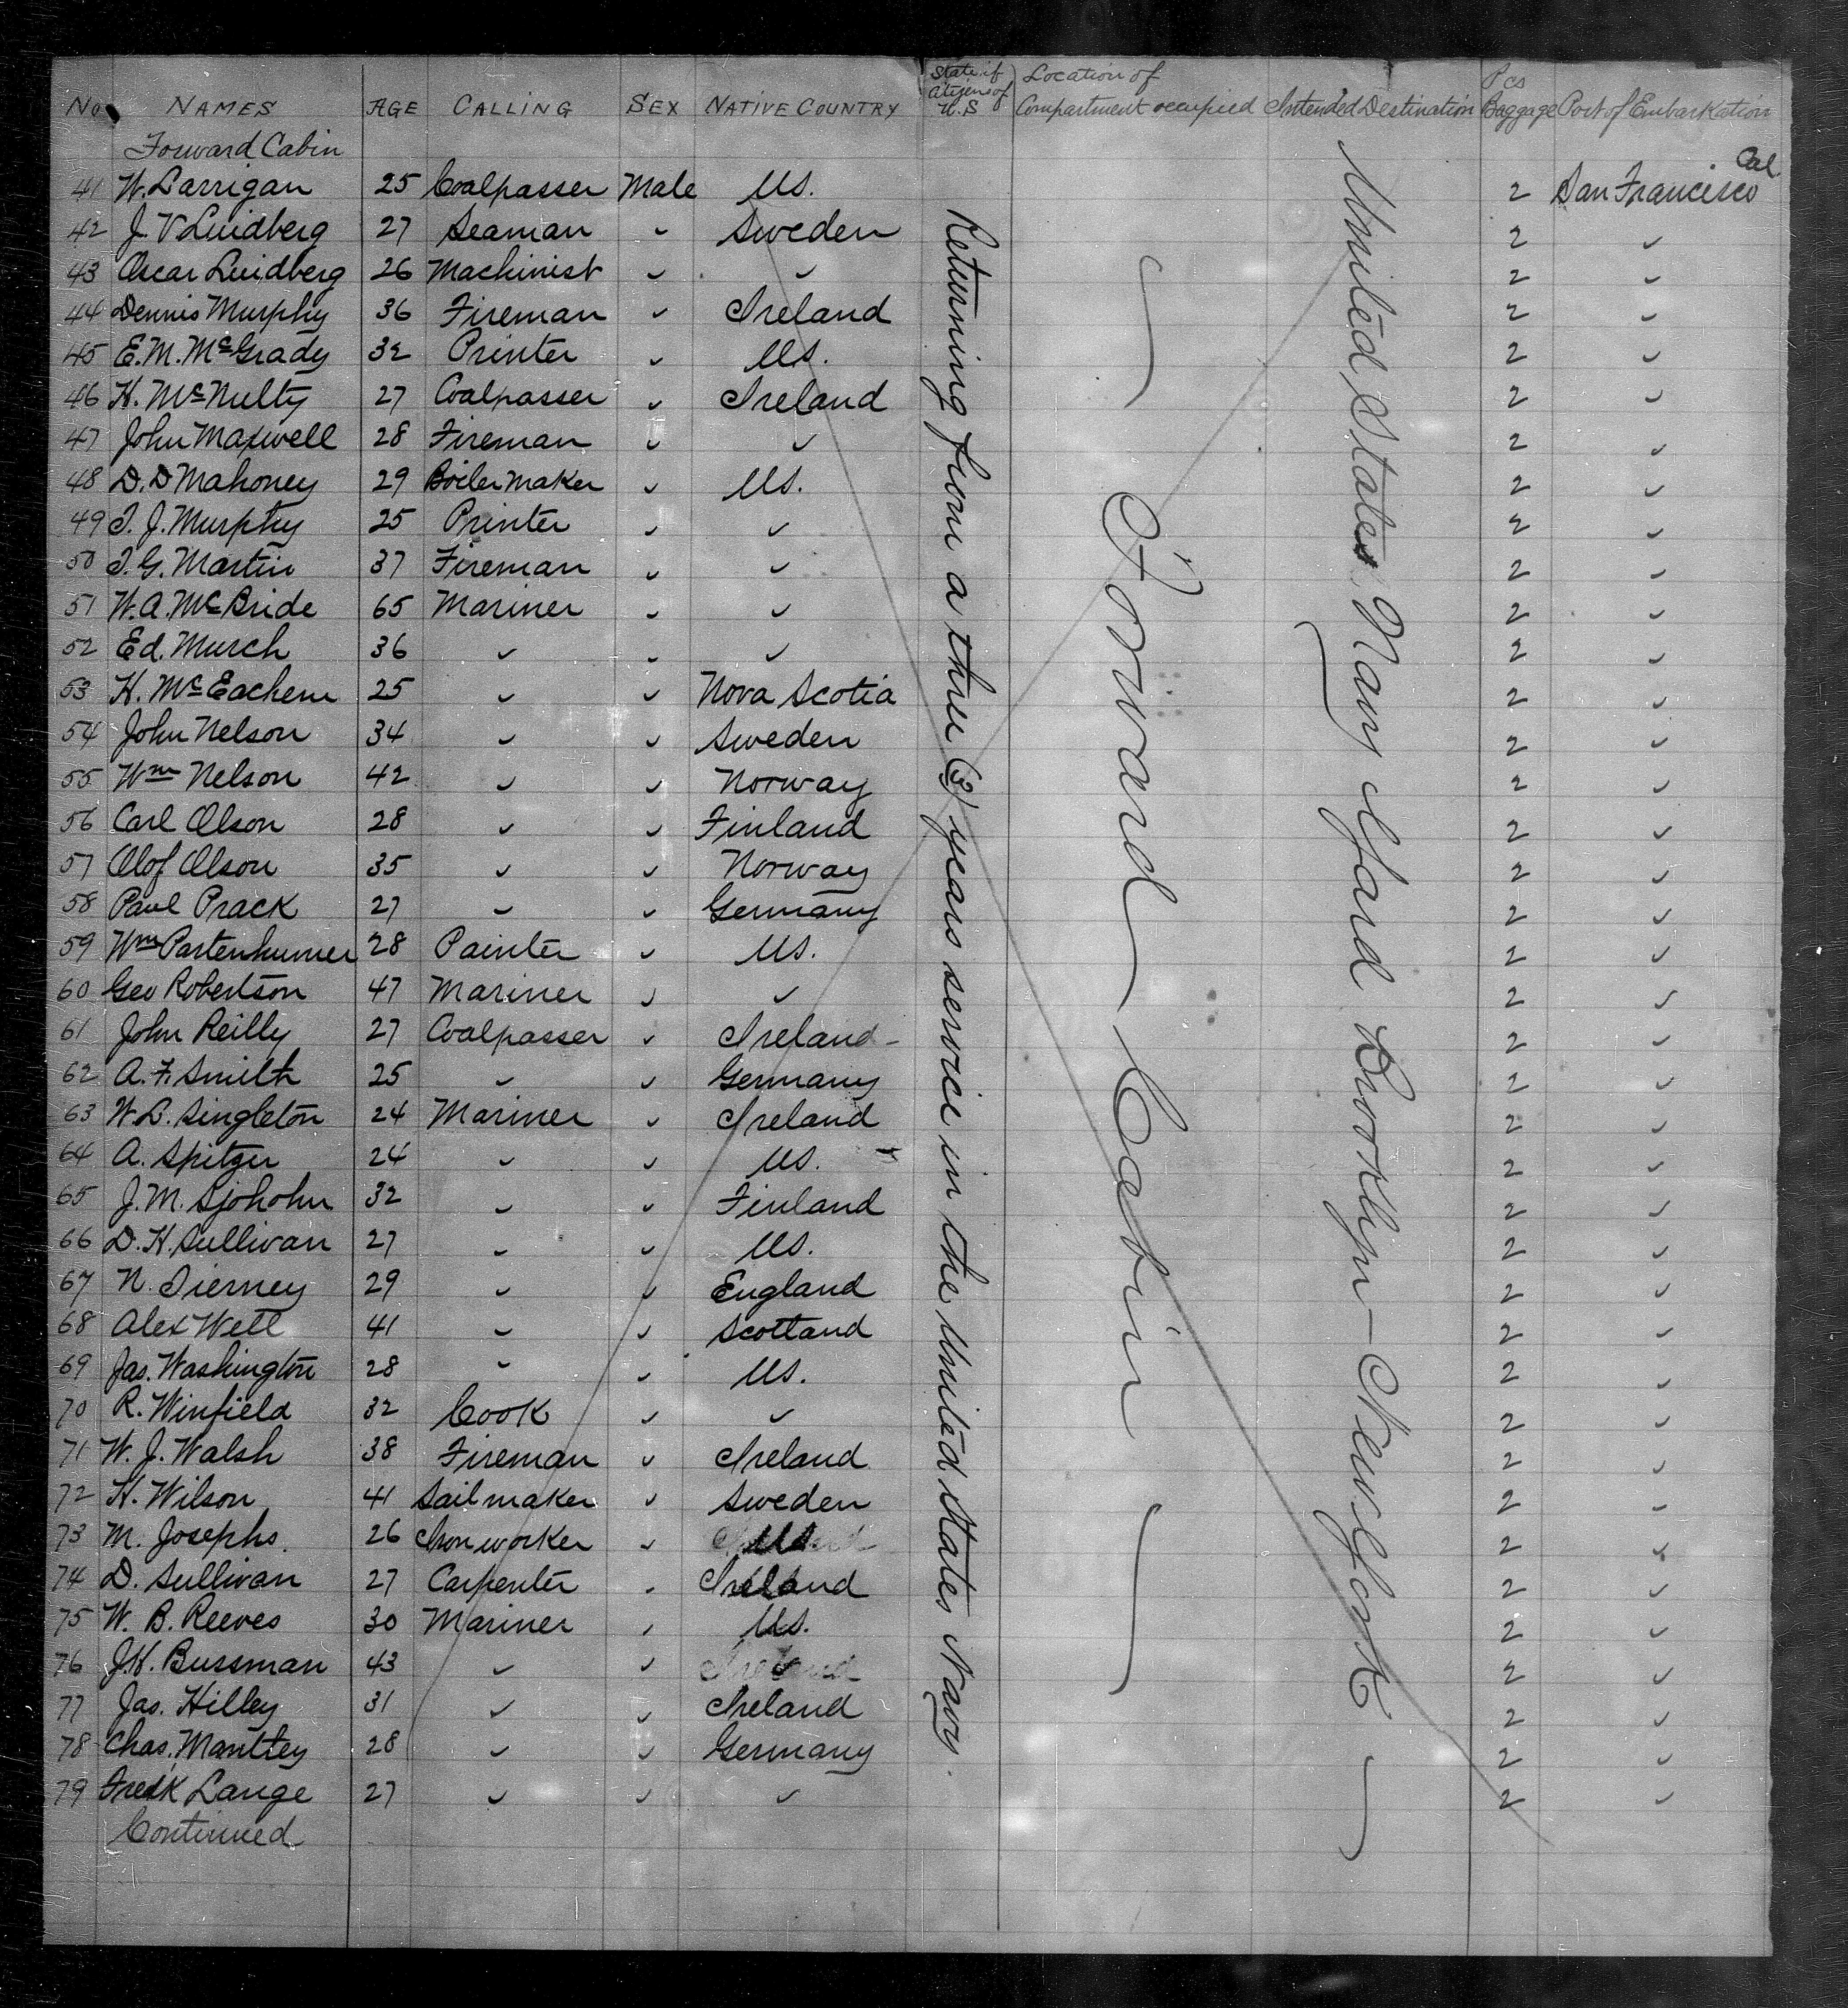 No. NAMES AGE CALLING SEX NATIVE COUNTRY State if Citizens of U.S Location of Compartment occupied Intended Destination Pcs Baggage Port of Embarkation
Forward Cabin
41 W. Larrigan 25 Coalpasser Male U.S. 2 San Francisco Cal.
42 J. V Lindberg 27 Seaman ✓ Sweden 2 ✓
43 Oscar Lindberg 26 Machinist ✓ ✓ 2 ✓
44 Dennis Murphy 36 Fireman ✓ Ireland 2 ✓
45 E. M. McGrady 32 Printer ✓ U.S. 2 ✓
46 H. McNulty 27 Coalpasser ✓ Ireland 2 ✓
47 John Maxwell 28 Fireman ✓ ✓ 2 ✓
48 D. D Mahoney 29 Boiler maker ✓ U.S. 2 ✓
49 T. J. Murphy 25 Printer ✓ ✓ 2 ✓
50 T. G. Martin 37 Fireman ✓ ✓ 2 ✓
51 W. A. McBride 65 Mariner ✓ ✓ 2 ✓
52 Ed. Murch 36 ✓ ✓ ✓ 2 ✓
53 H. McEachern 25 ✓ ✓ Nova Scotia 2 ✓
54 John Nelson 34 ✓ ✓ Sweden 2 ✓
55 Wm Nelson 42 ✓ ✓ Norway 2 ✓
56 Carl Olson 28 ✓ ✓ Finland 2 ✓
57 Olof Olson 35 ✓ ✓ Norway 2 ✓
58 Paul Prack 27 ✓ ✓ Germany 2 ✓
59 Wm Partenhumer 28 Painter ✓ U.S. 2 ✓
60 Geo Robertson 47 Mariner ✓ ✓ 2 ✓
61 John Reilly 27 Coalpasser ✓ Ireland 2 ✓
62 A. F. Smith 25 ✓ ✓ Germany 2 ✓
63 W. D. Singleton 24 Mariner ✓ Ireland 2 ✓
64 A. Spitzer 24 ✓ ✓ U.S. 2 ✓
65 J. M. Sjoholm 32 ✓ ✓ Finland 2 ✓
66 D. H. Sullivan 27 ✓ ✓ U.S. 2 ✓
67 N. Tierney 29 ✓ ✓ England 2 ✓
68 Alex Well 41 ✓ ✓ Scotland 2 ✓
69 Jas. Washington 28 ✓ ✓ U.S. 2 ✓
70 R. Winfield 32 Cook ✓ ✓ 2 ✓
71 W. J. Walsh 38 Fireman ✓ Ireland 2 ✓
72 H. Wilson 41 Sailmaker ✓ Sweden 2 ✓
73 M. Josephs. 26 Iron worker ✓ U.S. 2 ✓
74 D. Sullivan 27 Carpenter ✓ Ireland 2 ✓
75 W. B. Reeves 30 Mariner ✓ U.S. 2 ✓
76 J. H. Bussman 43 ✓ ✓ ✓ 2 ✓
77 Jas. Hilley 31 ✓ ✓ Ireland 2 ✓
78 Chas. Manttey 28 ✓ ✓ Germany 2 ✓
79 Fredk Lange 27 ✓ ✓ ✓ 2 ✓
Continued
Returning from a three (3) years service in the United States Navy.
Forward Cabin
United States Navy Yard Brooklyn – New York